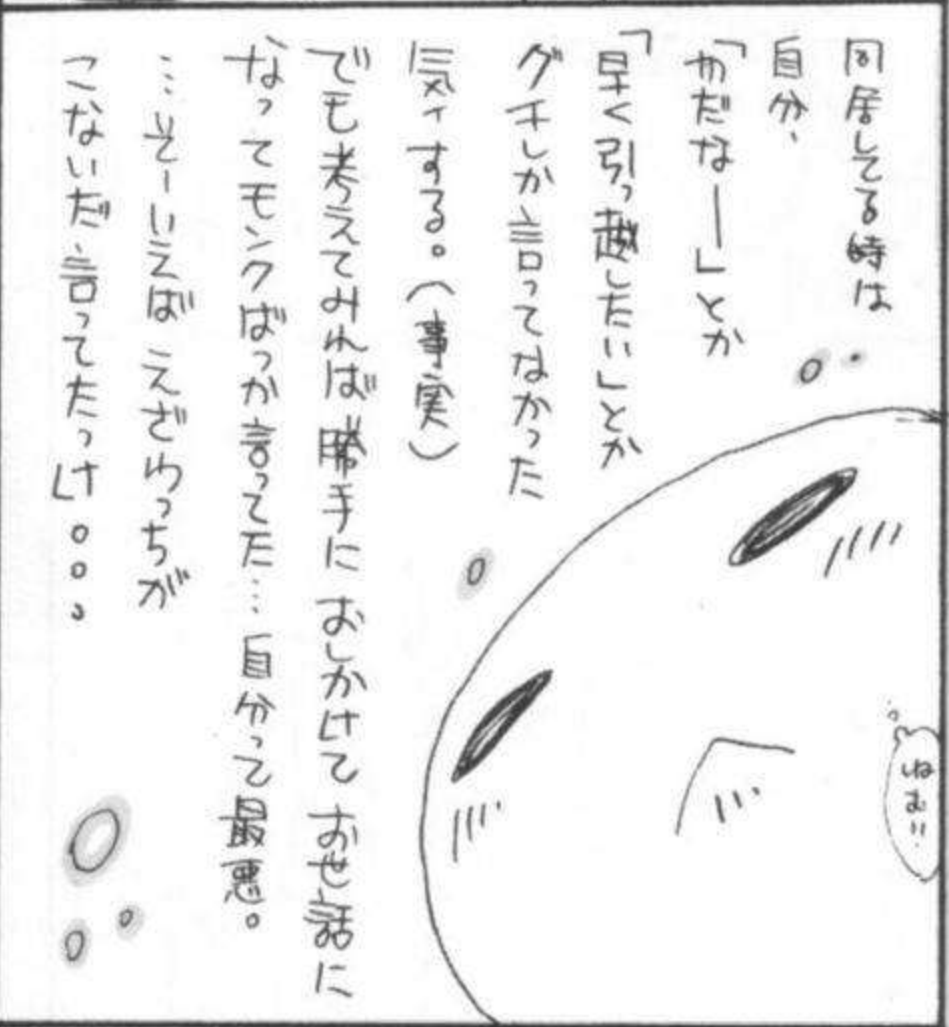 同居してる時は
自分、
「やだなー」とか
「早く引っ越したい」とか
グチしか言ってなかった
気ィする。(事実)
でも考えてみれば勝手におしかけてお世話に
なってモンクばっか言ってた…自分って最悪。
…そーいえばえざわっちが
こないだ言ってたっけ。。。
ねむい